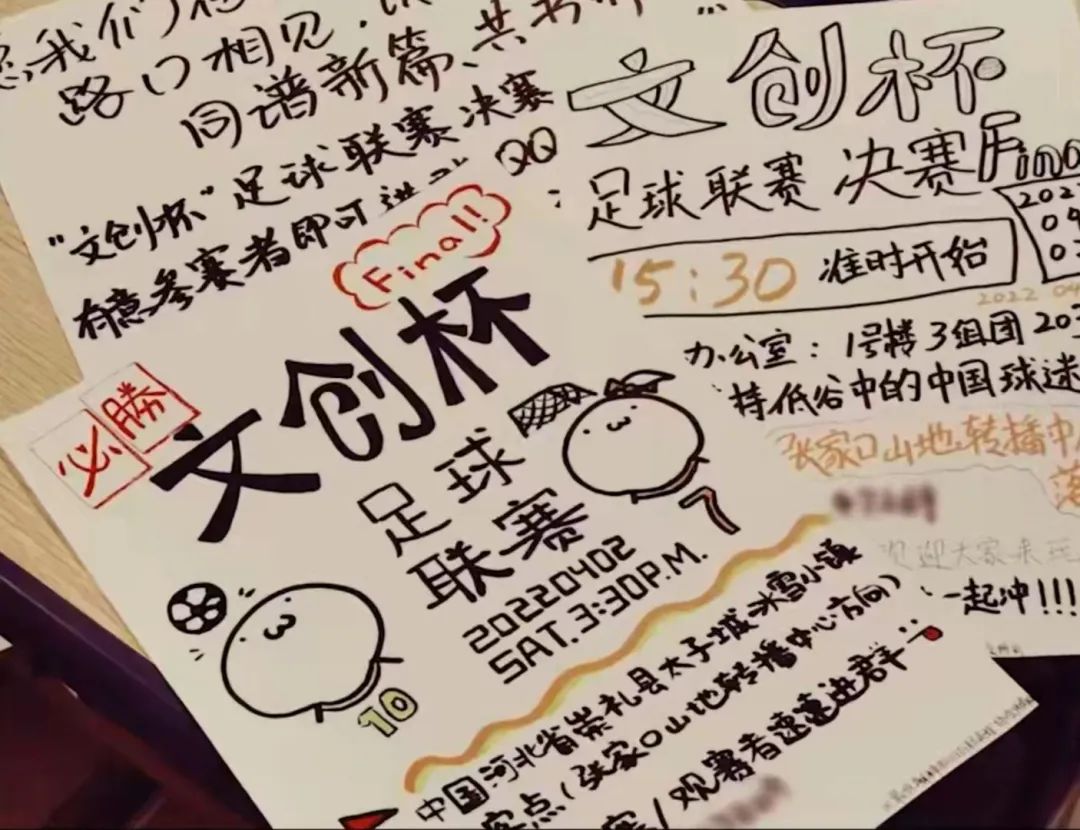 我们
路口相见
同谱新篇、共书
"文创杯"足球联赛决赛
有意参赛者即可进 QQ
文创杯
足球联赛 决赛 Fina
15:30 准时开始
2022 04
办公室：1号楼3组团 203
持低谷中的中国球迷
张家口山地转播中
欢迎大家来玩
一起冲!!!
Final!
必勝
文创杯
足球
联赛
20220402
SAT. 3:30P.M.
7
10
中国河北省崇礼县太子城冰雪小镇
客点（张家口山地转播中心方向）
赛/观赛者速速进群